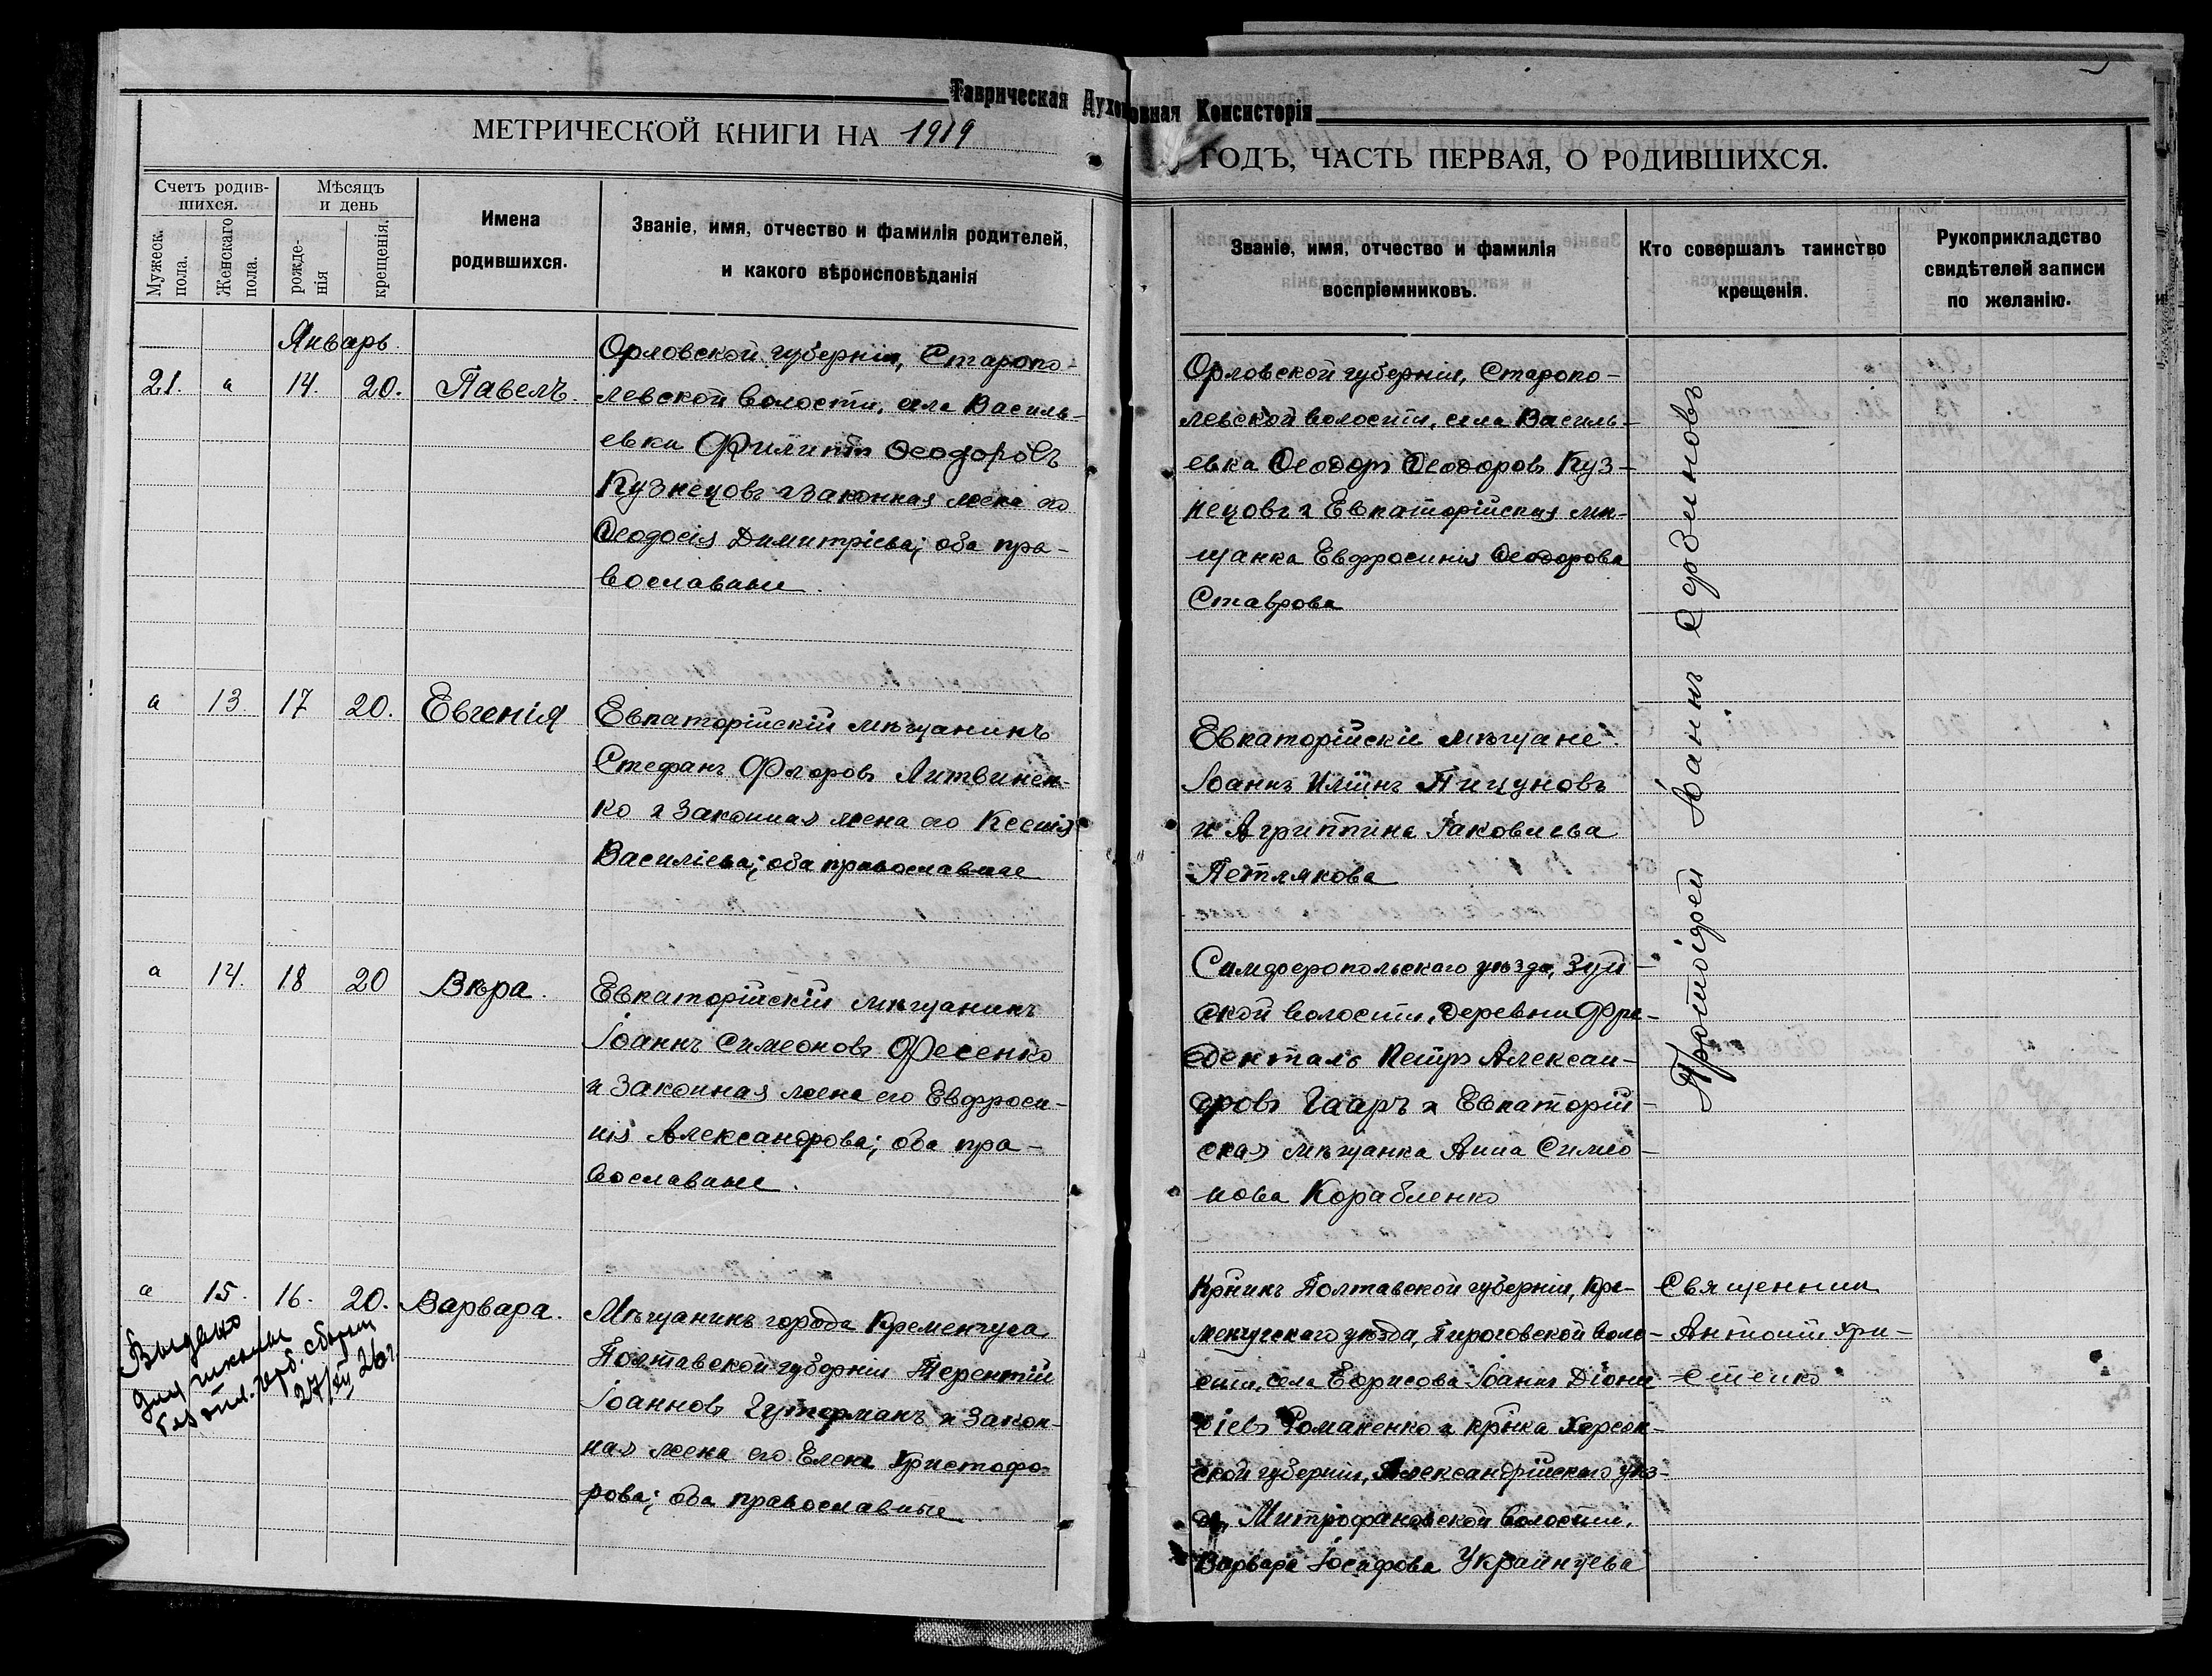 Таврическая Духовная Консисторія
МЕТРИЧЕСКОЙ КНИГИ НА 1919
ГОДЪ, ЧАСТЬ ПЕРВАЯ, О РОДИВШИХСЯ.
Счетъ родив-
шихся.
Мужеск. пола.
Женскаго пола.
Мѣсяцъ
и день
рожде-
нія
крещенія.
Имена
родившихся.
Званіе, имя, отчество и фамилія родителей,
и какого вѣроисповѣданія
Званіе, имя, отчество и фамилія
воспріемниковъ.
Кто совершалъ таинство
крещенія.
Рукоприкладство
свидѣтелей записи
по желанію.
Январь
21. " 14. 20. Павелъ.
Орловской губерніи, Старопо-
левской волости, села Василь-
евка Филиппъ Ѳеодоровъ
Кузнецовъ и законная жена его
Ѳеодосія Димитріева; оба пра-
вославные.
Орловской губерніи, Старопо-
левской волости, села Василь-
евка Ѳеодоръ Ѳеодоровъ Куз-
нецовъ и Евпаторійская мѣ-
щанка Евфросинія Ѳеодорова
Ставрова
Протоіерей Іоаннъ Сербиновъ
" 13. 17 20. Евгенія
Евпаторійскій мѣщанинъ
Стефанъ Флоровъ Литвинен-
ко и законная жена его Ксенія
Василіева; оба православные
Евпаторійскіе мѣщане:
Іоаннъ Иліинъ Пицуновъ
и Агриппина Іаковлева
Петлякова
" 14. 18 20 Вѣра.
Евпаторійскій мѣщанинъ
Іоаннъ Симеоновъ Фесенко
и законная жена его Евфроси-
нія Александрова; оба пра-
вославные.
Симферопольскаго уѣзда, Зуй-
ской волости, деревни Фри-
денталь Петръ Алексан-
дровъ Гааръ и Евпаторій-
ская мѣщанка Анна Симео-
нова Корабленко
" 15. 16. 20. Варвара.
Мѣщанинъ города Кременчуга
Полтавской губерніи Терентій
Іоанновъ Гутерманъ и закон-
ная жена его Елена Христофо-
рова; оба православные.
Кр-нинъ Полтавской губерніи, Кре-
менчугскаго уѣзда, Пироговской воло-
сти, села Борисова Іоаннъ Діони-
сіевъ Романенко и кр-нка Херсон-
ской губерніи, Александрійскаго уѣз-
да, Митрофановской волости,
Варвара Іосифова Украинцева
Священник
Антоній Хри-
стенко
Выдано
для школы
без опл. герб. сбором
27/XII 26г